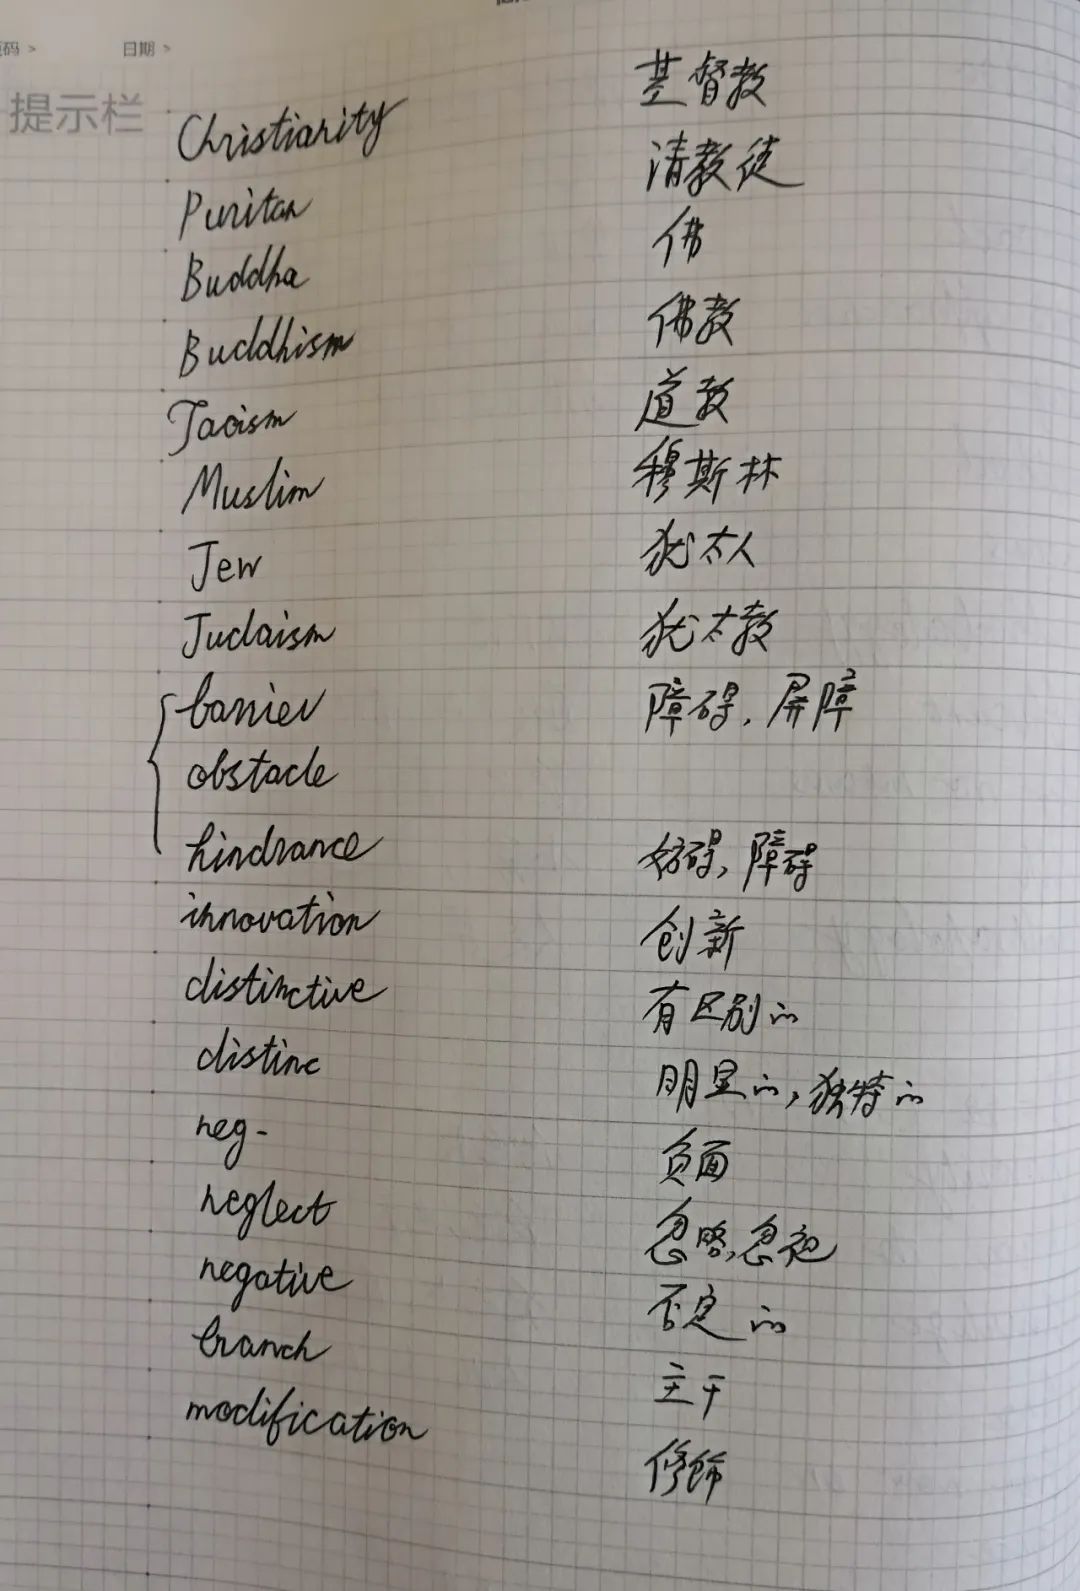 码 >	日期 >
提示栏
Christianity	基督教
Puritan	清教徒
Buddha	佛
Buddhism	佛教
Taoism	道教
Muslim	穆斯林
Jew	犹太人
Judaism	犹太教
barrier	障碍, 屏障
obstacle
hindrance	妨碍, 障碍
innovation	创新
distinctive	有区别的
distinc	明显的, 独特的
neg-	负面
neglect	忽略, 忽视
negative	否定的
branch	主干
modification	修饰